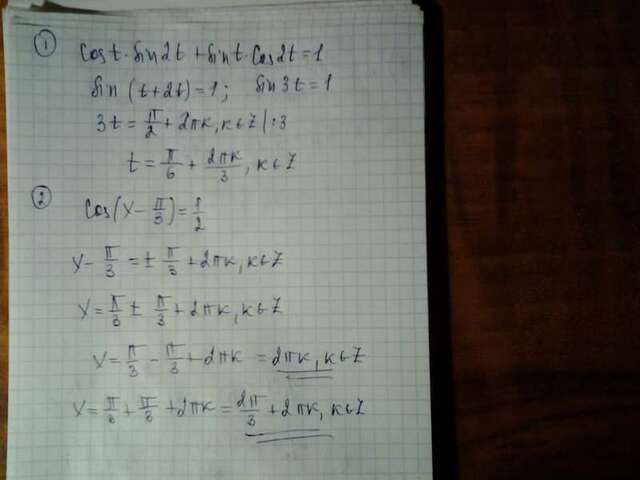 ① cos t · sin 2t + sin t · cos 2t = 1
sin (t + 2t) = 1; sin 3t = 1
3t = π/2 + 2πк, к ∈ Z | : 3
t = π/6 + 2πк/3, к ∈ Z
② cos(x - π/3) = 1/2
x - π/3 = ± π/3 + 2πк, к ∈ Z
x = π/3 ± π/3 + 2πк, к ∈ Z
x = π/3 - π/3 + 2πк = 2πк, к ∈ Z
x = π/3 + π/3 + 2πк = 2π/3 + 2πк, к ∈ Z